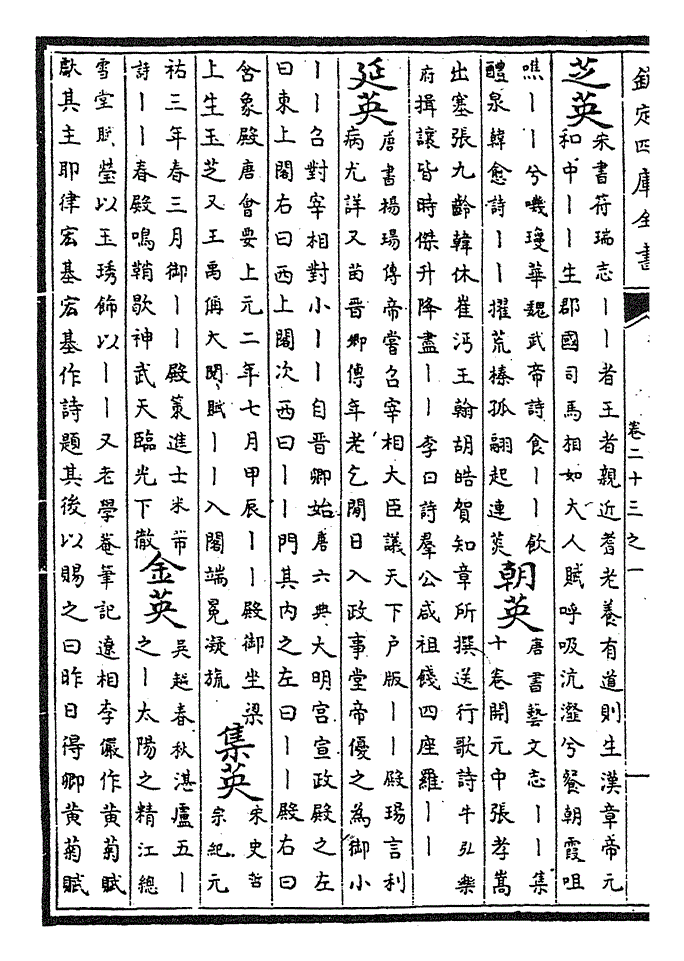 欽定四庫全書
卷二十三之一
芝英
宋書符瑞志丨丨者王者親近耆老養有道則生漢章帝元
和中丨丨生郡國司馬相如大人賦呼吸沆瀣兮餐朝霞咀
噍丨丨兮嘰瓊華魏武帝詩食丨丨飲
醴泉韓愈詩丨丨擢荒榛孤翮起連菼
朝英
唐書藝文志丨丨集
十卷開元中張孝嵩
出塞張九齡韓休崔沔王翰胡皓賀知章所撰送行歌詩牛弘樂
府揖讓皆時傑升降盡丨丨李白詩羣公咸祖餞四座羅丨丨
延英
唐書楊瑒傳帝嘗召宰相大臣議天下户版丨丨殿瑒言利
病尤詳又苗晉卿傳年老乞間日入政事堂帝優之為御小
丨丨召對宰相對小丨丨自晉卿始唐六典大明宮宣政殿之左
曰東上閤右曰西上閤次西曰丨丨門其内之左曰丨丨殿右曰
含象殿唐會要上元二年七月甲辰丨丨殿御坐梁
上生玉芝又王禹偁大閱賦丨丨入閤端冕凝旒
集英
宋史哲
宗紀元
祐三年春三月御丨丨殿策進士米芾
詩丨丨春殿鳴鞘歇神武天臨光下徹
金英
吳越春秋湛盧五丨
之丨太陽之精江總
雪堂賦瑩以玉琇飾以丨丨又老學菴筆記遼相李儼作黄菊賦
獻其主耶律宏基宏基作詩題其後以賜之曰昨日得卿黄菊賦